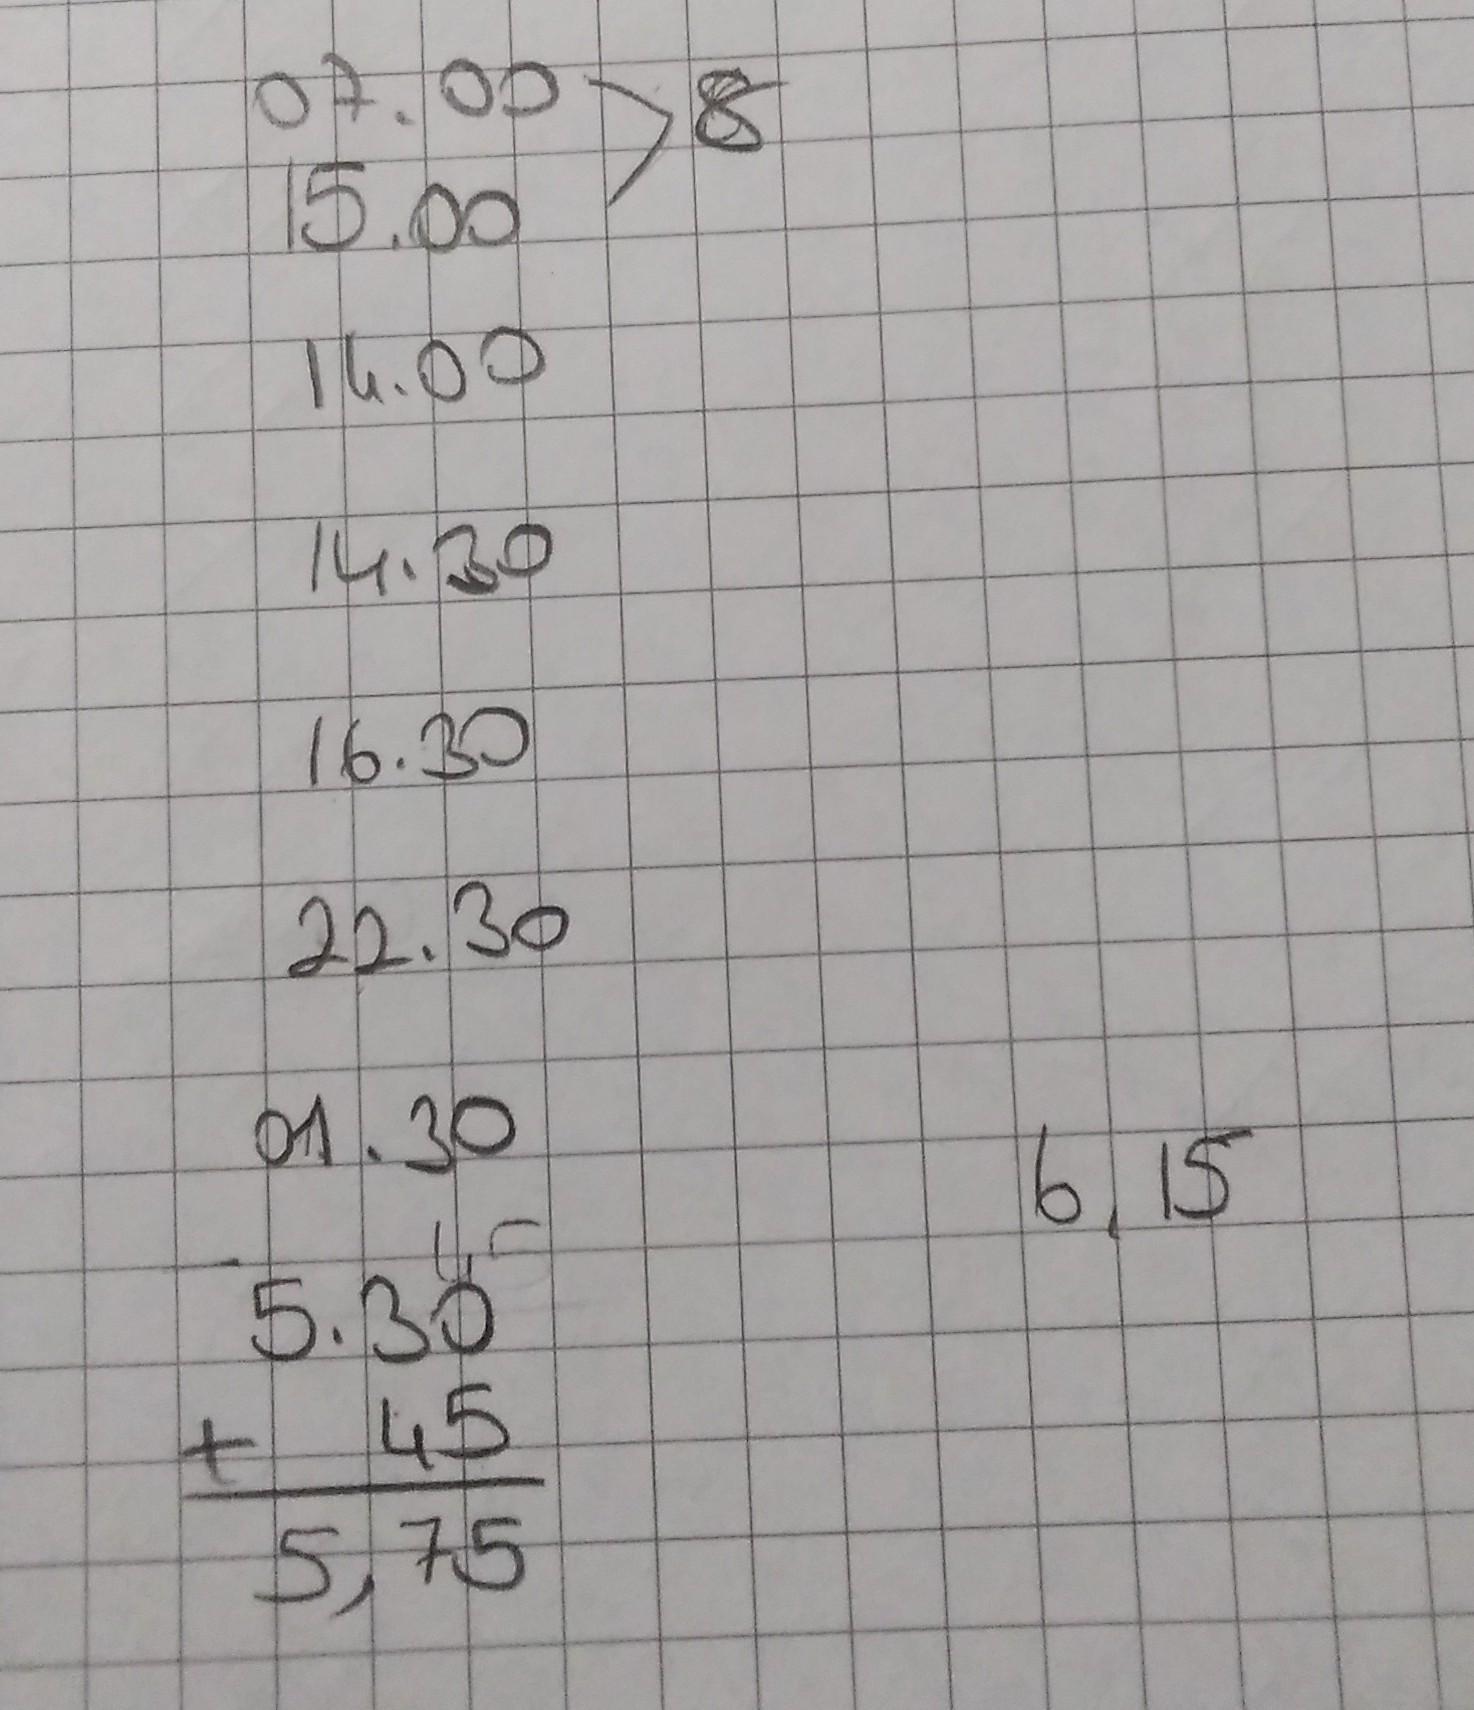 07.00 > 8
15.00
14.00
14.30
16.30
22.30
01.30
6,15
45
5.30
+ 45
5,75